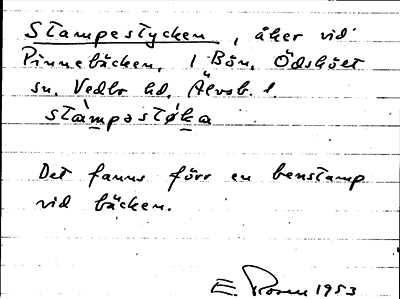 Stampestycken, åker vid
Pinnebäcken, 1 Bön, Ödskölt
sn. Vedbo hd. Älvsb. l.
stàmpəstøka
Det fanns förr en benstamp
vid bäcken.
E. Rosen 1953